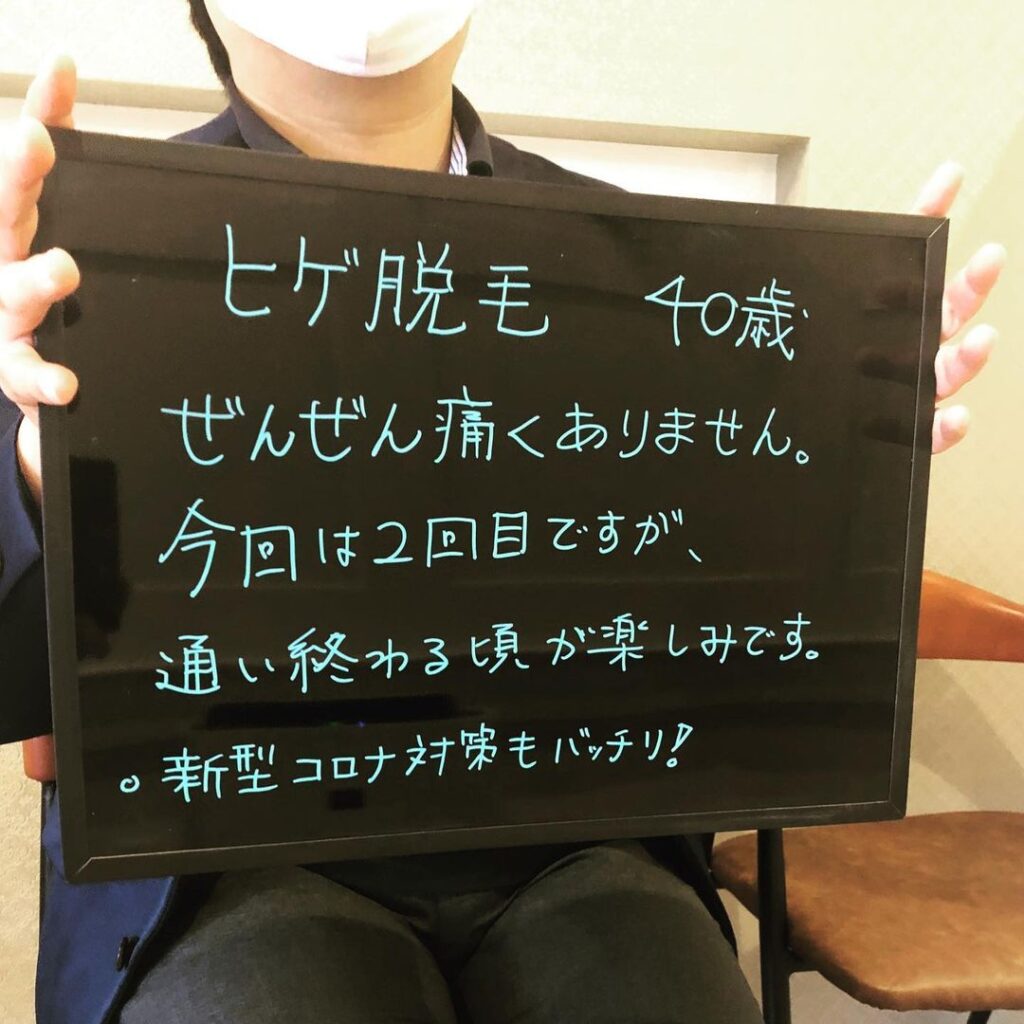 ヒゲ脱毛 40歳
ぜんぜん痛くありません。
今回は2回目ですが、
通い終わる頃が楽しみです。
。新型コロナ対策もバッチリ!